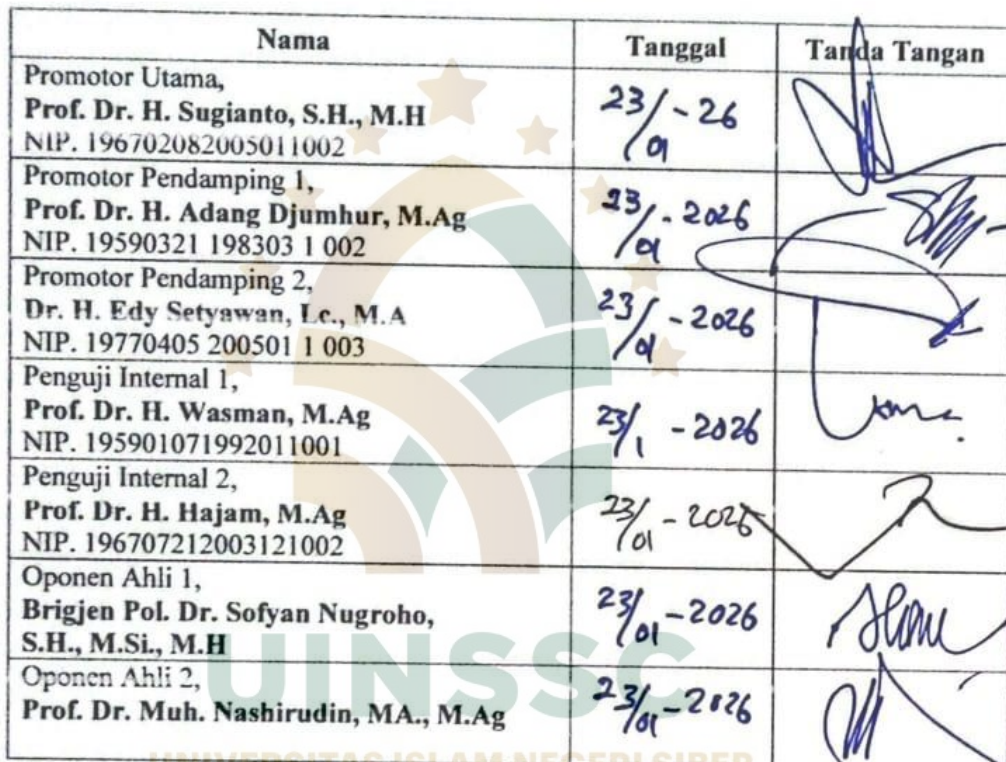 Nama Tanggal Tanda Tangan
Promotor Utama,
Prof. Dr. H. Sugianto, S.H., M.H
NIP. 196702082005011002
23/01-26
Promotor Pendamping 1,
Prof. Dr. H. Adang Djumhur, M.Ag
NIP. 19590321 198303 1 002
23/01-2026
Promotor Pendamping 2,
Dr. H. Edy Setyawan, Lc., M.A
NIP. 19770405 200501 1 003
23/01-2026
Penguji Internal 1,
Prof. Dr. H. Wasman, M.Ag
NIP. 195901071992011001
23/1-2026
Penguji Internal 2,
Prof. Dr. H. Hajam, M.Ag
NIP. 196707212003121002
23/01-2026
Oponen Ahli 1,
Brigjen Pol. Dr. Sofyan Nugroho,
S.H., M.Si., M.H
23/01-2026
Oponen Ahli 2,
Prof. Dr. Muh. Nashirudin, MA., M.Ag
23/01-2026
UINSSC
UNIVERSITAS ISLAM NEGERI SIBER